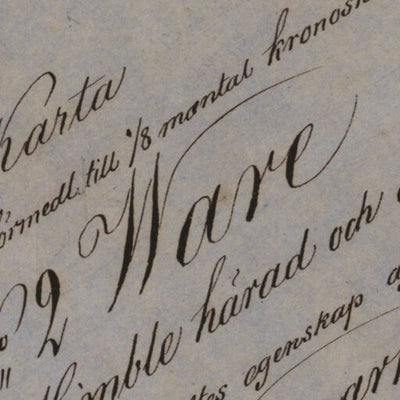 Karta
förmedl. till 1/8 mantal kronosk
No 2 Ware
Kimble härad och
tes egenskap a